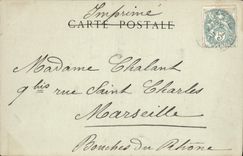 Imprimé
CARTE POSTALE
Madame Chalant
9 bis rue Saint Charles
Marseille
Bouches du Rhône